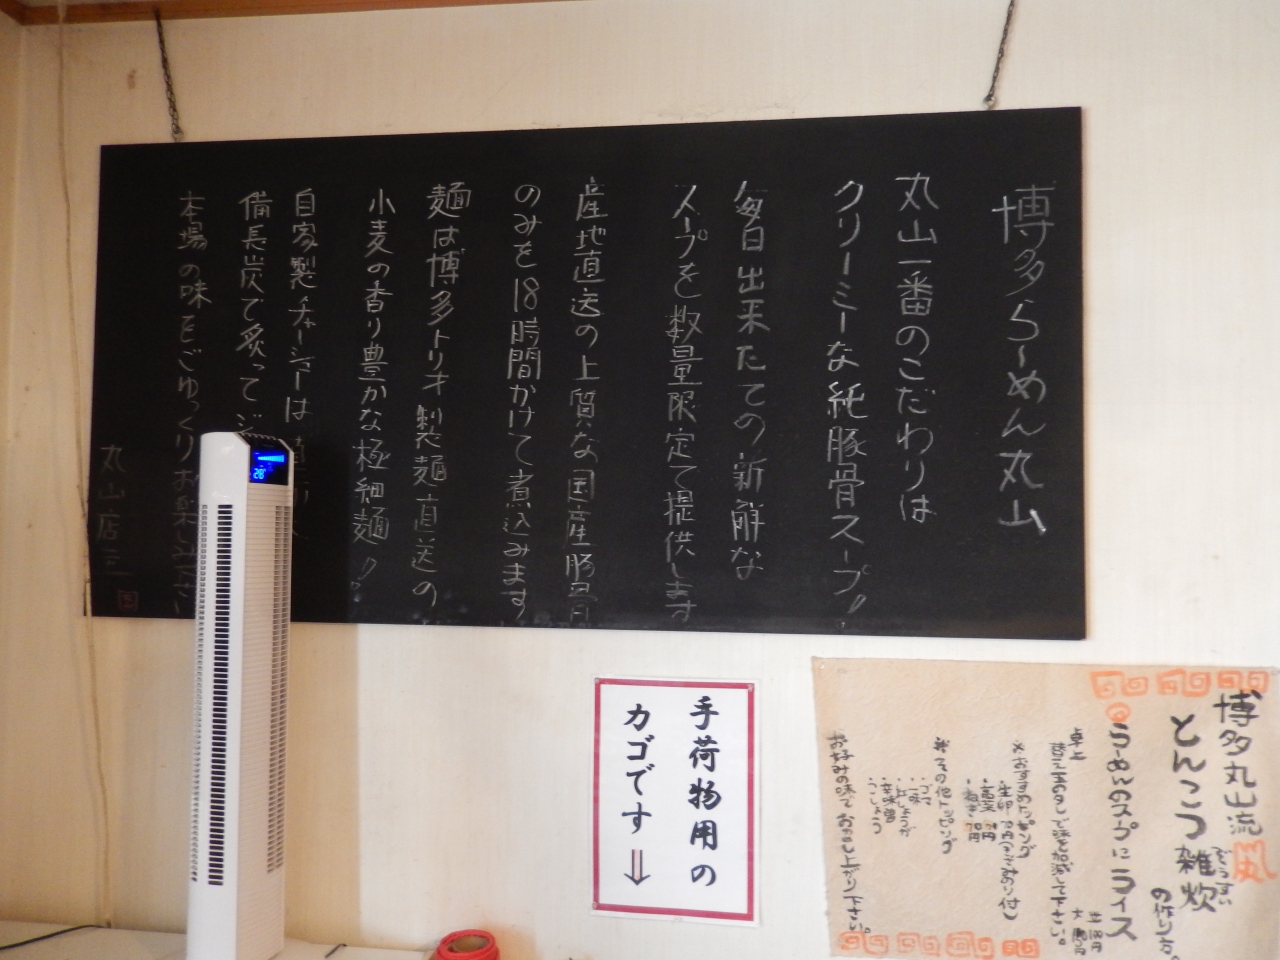 博多らーめん丸山
丸山一番のこだわりは
クリーミーな純豚骨スープ!!
毎日出来たての新鮮な
スープを数量限定で提供します
産地直送の上質な国産豚骨
のみを18時間かけて煮込みます
麺は博多トリオ製麺直送の
小麦の香り豊かな極細麺!!
自家製チャーシューは
備長炭で炙ってジ
本場の味をごゆっくりお楽し下さい
丸山店主
28°
手荷物用の
カゴです
博多丸山流
とんこつ雑炊の作り方。
ぞうすい
らーめんのスープにライス
大
卓上
替え玉のタレで味を加減して下さい。
※おすすめトッピング
・生卵
・高菜
・ねぎ
※その他トッピング
・ゴマ
・一味
・紅しょうが
・辛味噌
・こしょう
お好みの味でお召し上がり下さい。